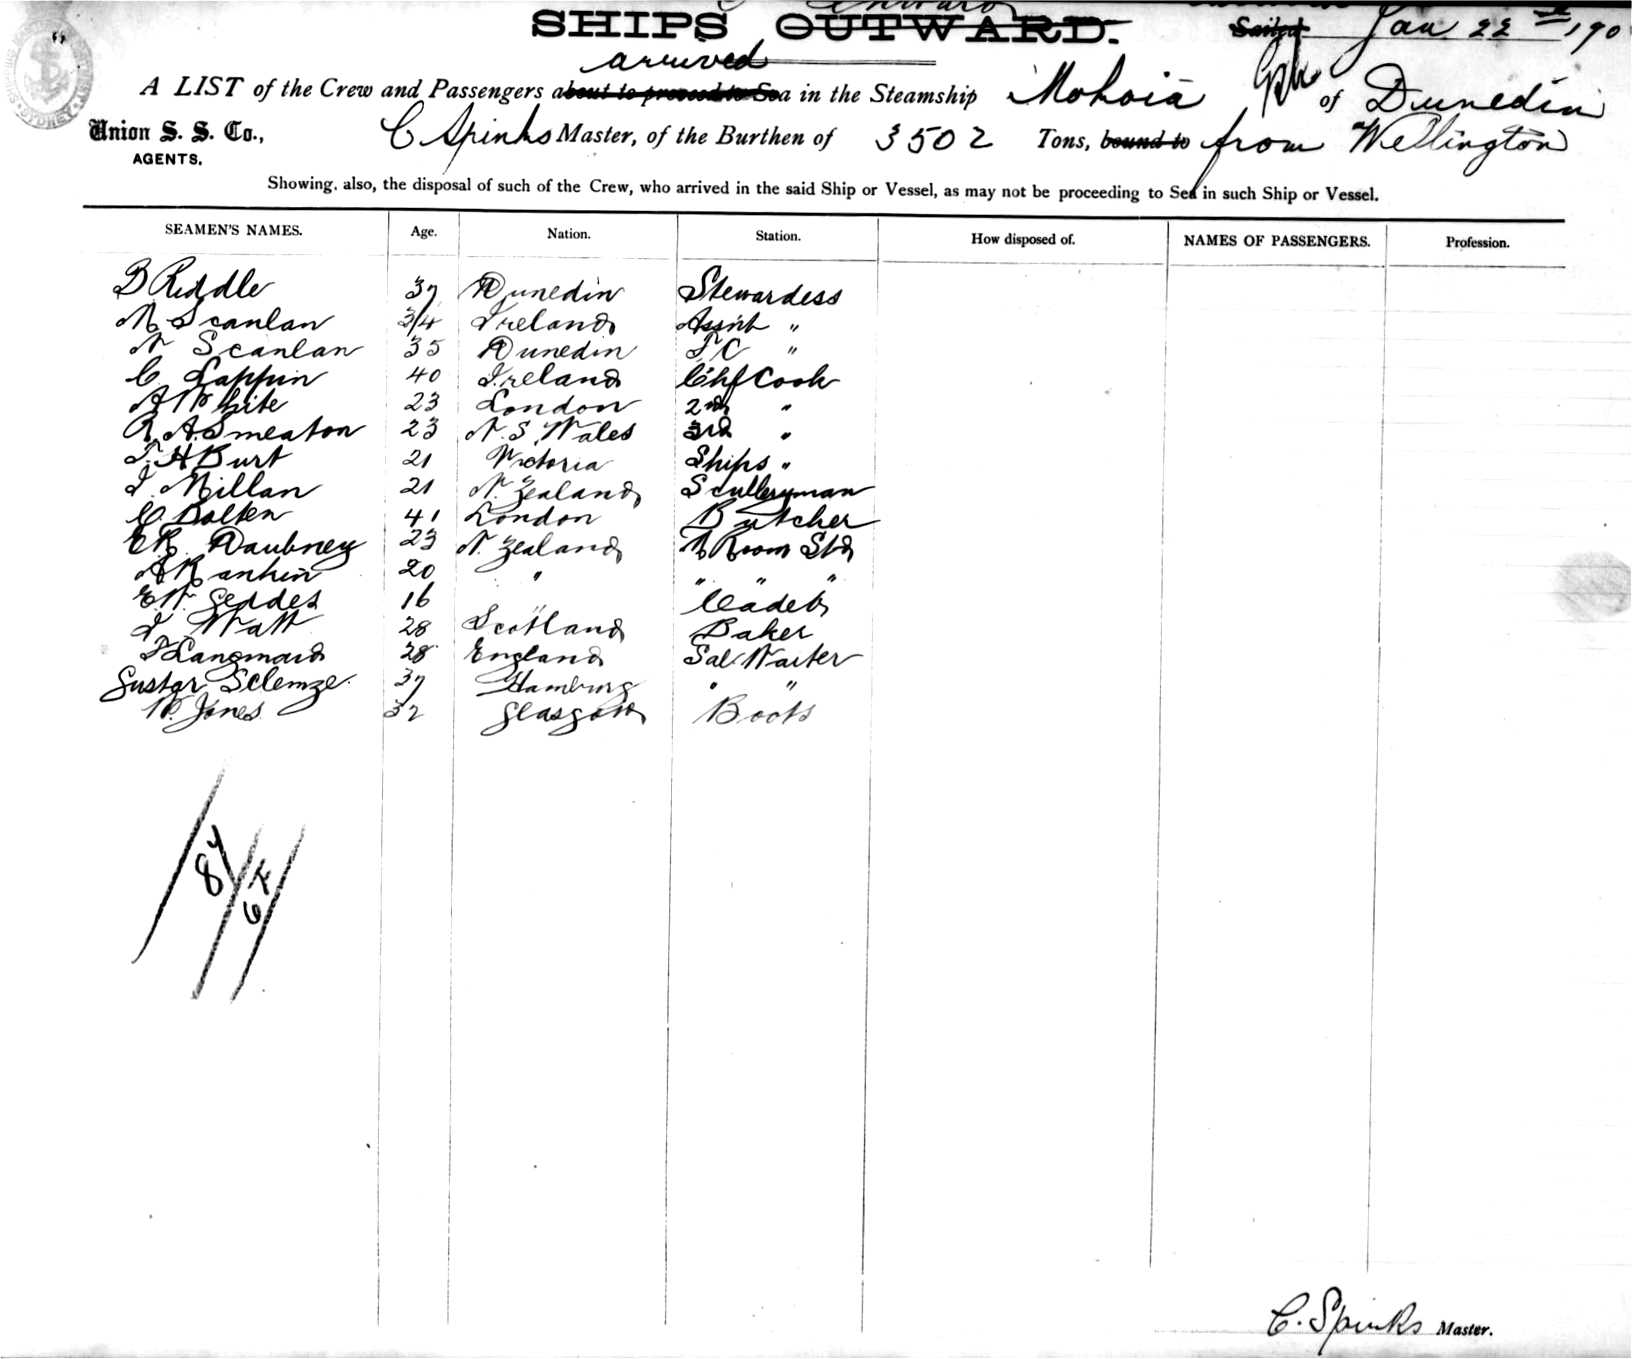 Inward
SHIPS OUTWARD. Sailed Jan 22nd 190
arrived
A LIST of the Crew and Passengers about to proceed to Sea in the Steamship Mokoia of Dunedin
Union S. S. Co., C Spinks Master, of the Burthen of 3502 Tons, bound to from Wellington
AGENTS.
Showing, also, the disposal of such of the Crew, who arrived in the said Ship or Vessel, as may not be proceeding to Sea in such Ship or Vessel.
SEAMEN'S NAMES. Age. Nation. Station. How disposed of. NAMES OF PASSENGERS. Profession.
B Riddle 37 Dunedin Stewardess
M Scanlan 34 Ireland Assist "
N Scanlan 35 Dunedin "
C Lappin 40 Ireland Chf Cook
A White 23 London 2nd "
R. A. Smeaton 23 N. S. Wales 3rd "
T. H Burt 21 Victoria Ships "
J. Millan 21 N. Zealand Sculleryman
C. Bolten 41 London Butcher
E R Daubney 23 N. Zealand M Room Std
A Rankin 20 " " " "
E. W. Geddes 16 " Cadet
J Watt 28 Scotland Baker
T Langmaid 28 England Sal. Waiter
Gustav Sclemze 37 Hamburg " "
W. Jones 32 Glasgow Boots
84
67
C. Spinks Master.